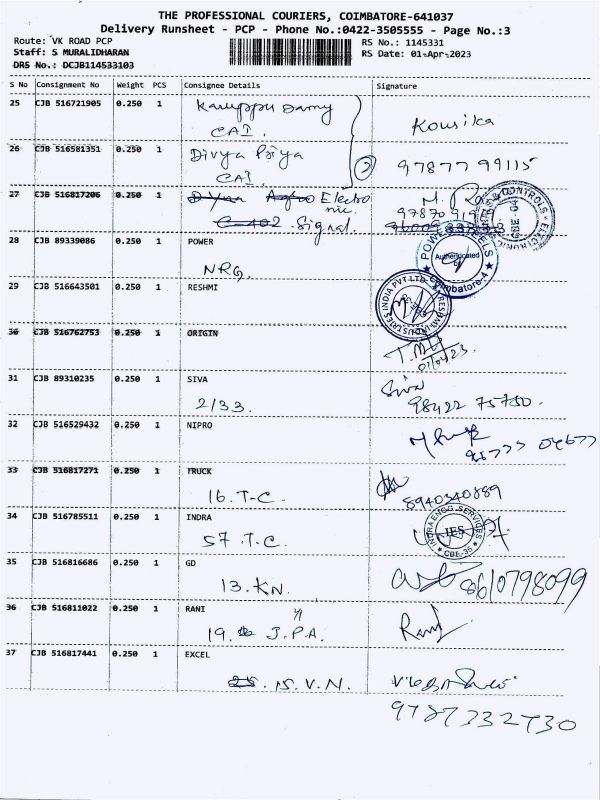 THE PROFESSIONAL COURIERS, COIMBATORE-641037
Delivery Runsheet - PCP - Phone No.:0422-3505555 - Page No.:3
Route: VK ROAD PCP
RS No.: 1145331
Staff: S MURALIDHARAN
RS Date: 01-Apr-2023
DRS No.: DCJB114533103
S No Consignment No Weight PCS Consignee Details Signature
25 CJB 516721905 0.250 1 Karuppu Samy
CAI.
Kousika
26 CJB 516581351 0.250 1 Divya Priya
CAI.
2
97877 99115
27 CJB 516817206 0.250 1 Electro
nic.
Signal.
CONTROLS ELECTRONIC
CBE-04
28 CJB 89339086 0.250 1 POWER
NRG
POWER
Authenticated
Coimbatore-4
29 CJB 516643501 0.250 1 RESHMI
RESHMI INDUSTRIES INDIA PVT LTD
30 CJB 516762753 0.250 1 ORIGIN
01/04/23.
31 CJB 89310235 0.250 1 SIVA
2/33.
Siva
98422 75750.
32 CJB 516529432 0.250 1 NIPRO
33 CJB 516817271 0.250 1 TRUCK
16. T-C.
8940340889
34 CJB 516785511 0.250 1 INDRA
57. T.C.
INDRA ENGG. SERVICES
IES
CBE-35
35 CJB 516816686 0.250 1 GD
13. KN.
8610798099
36 CJB 516811022 0.250 1 RANI
19. J.P.A.
Rani
37 CJB 516817441 0.250 1 EXCEL
15. V.N.
9787332730